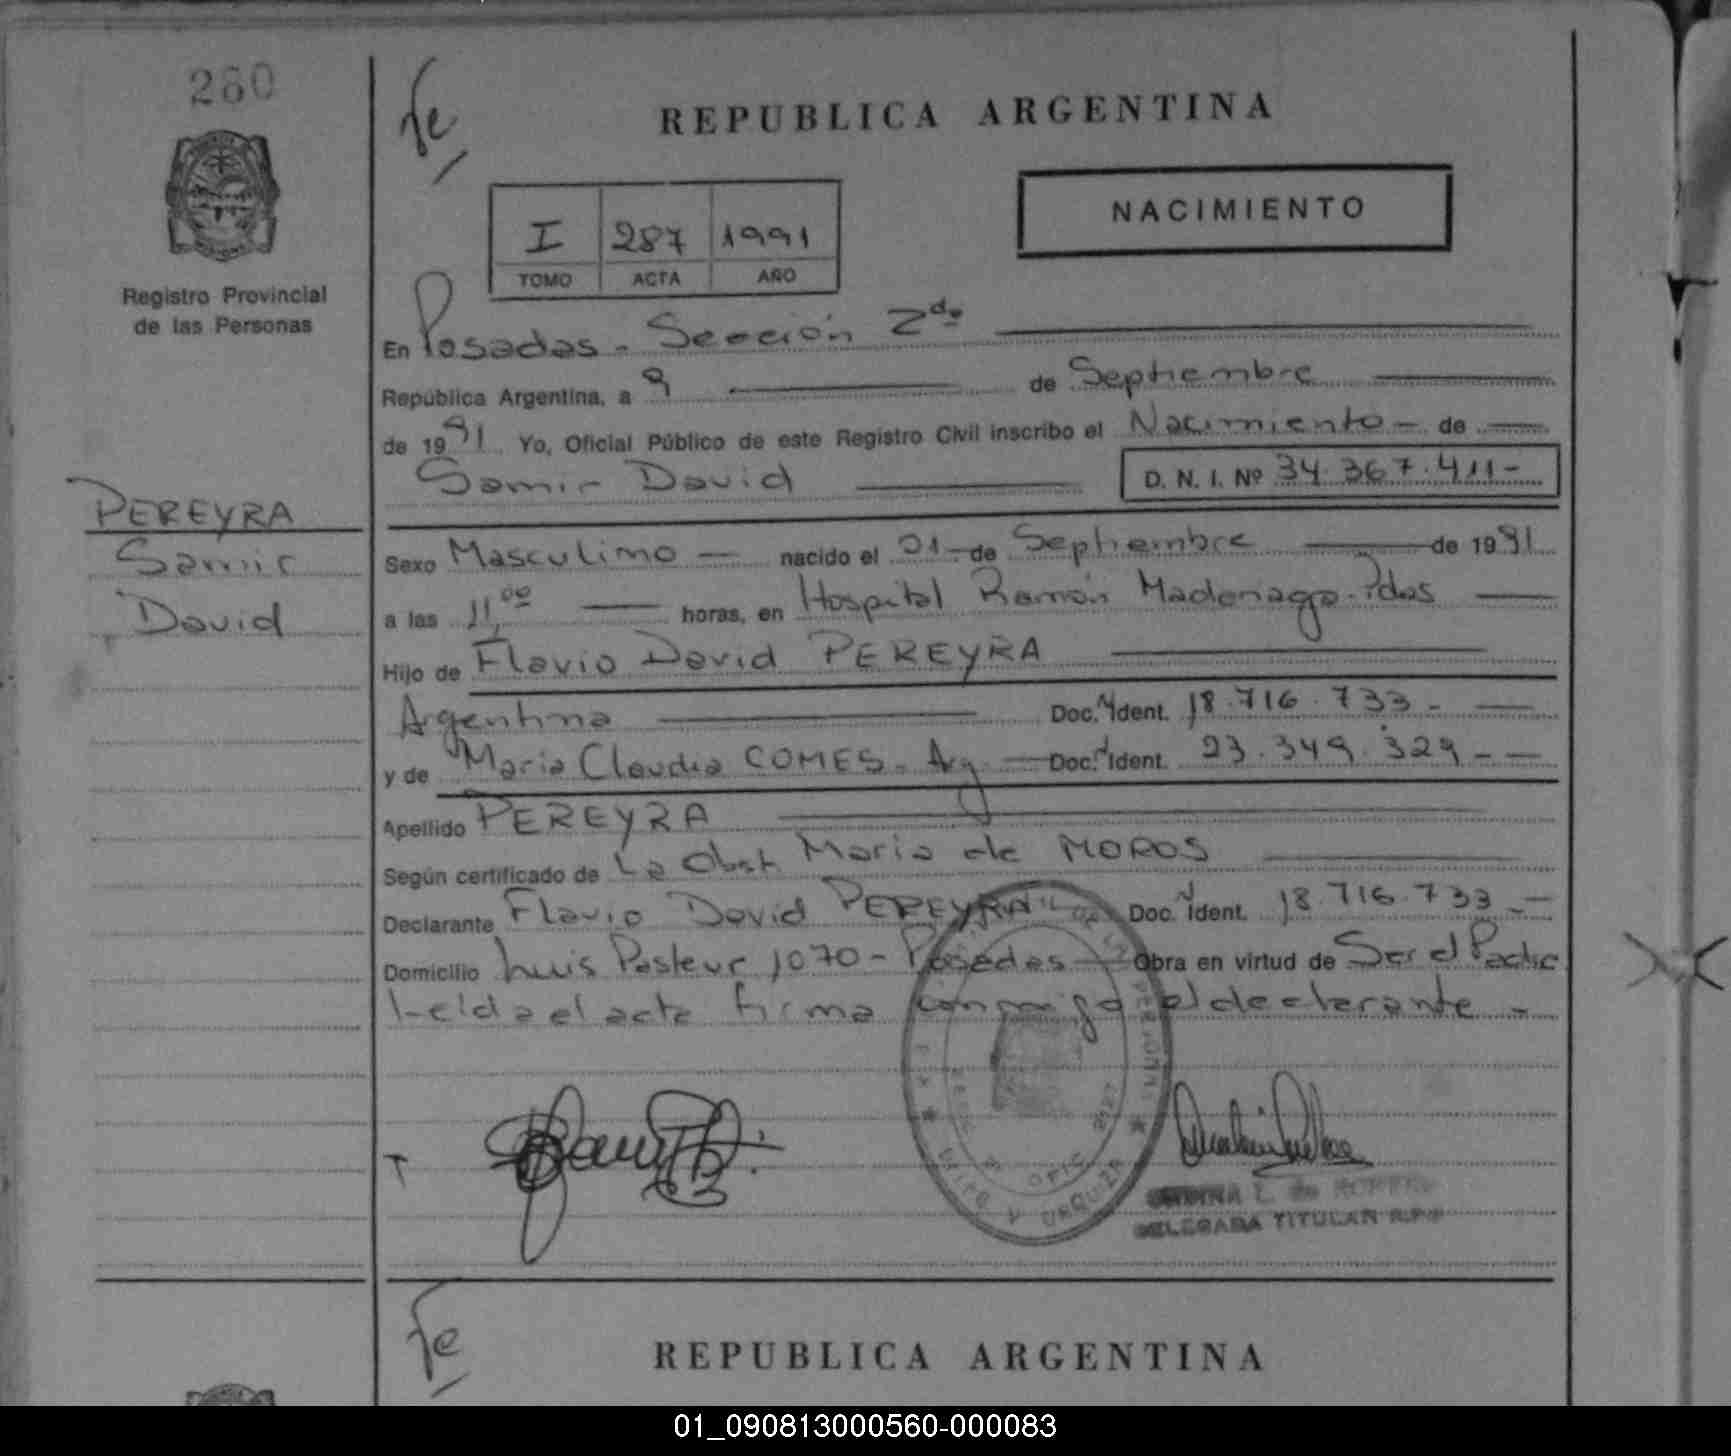 280
Registro Provincial
de las Personas
PEREYRA
Samir
David
Fe
REPUBLICA ARGENTINA
NACIMIENTO
I 287 1991
TOMO ACTA AÑO
En Posadas - Sección 2da
República Argentina, a 9 de Septiembre
de 1991 Yo, Oficial Público de este Registro Civil inscribo el Nacimiento - de
Samir David D. N. I. Nº 34.367.411-
Sexo Masculino nacido el 01 de Septiembre de 1991
a las 11,00 horas, en Hospital Ramón Madariaga. Pdas
Hijo de Flavio David PEREYRA
Argentina Doc. Ident. 18.716.733-
y de Maria Claudia COMES - Arg Doc. Ident. 23.349.329-
Apellido PEREYRA
Según certificado de La Obst. Maria de MOROS
Declarante Flavio David PEREYRA Doc. Ident. 18.716.733-
Domicilio Luis Pasteur 1070 - Posadas Obra en virtud de Ser el Padre
Leida el acta firma conmigo el declarante -
URQUIZA
DELEGADA TITULAR R.P.P
Fe
REPUBLICA ARGENTINA
01_090813000560-000083